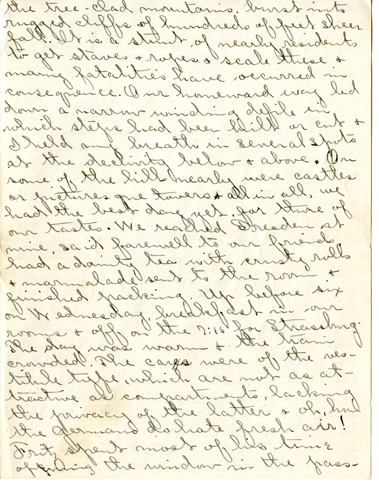 the tree-clad mountains, burst into
rugged cliffs of hundreds of feet sheer
fall. It is a stunt of nearly residents
to get staves & ropes & scale these &
many fatalities have occurred in
consequence. Our homeward way led
down a narrow winding defile in
which steps had been built or cut &
I held my breath in several spots
at the declivity below & above. On
some of the hills nearly were castles
or pictures que towers & all in all, we
had the best day yet, for three of
our tastes. We reached Dresden at
nine, said farewell to our friend,
had a dainty tea with crusty rolls
& marmalade sent to the room &
finished packing. Up before six
on Wednesday, breakfast in our
rooms & off on the 7:16 for Strassburg.
The day was warm & the train
crowded. The cars were of the ves-
tibule type, which are not as at-
tractive as compartments, lacking
the privacy of the latter & oh, how
the Germans do hate fresh air!
Fritz spent most of his time
opening the window in the pass-